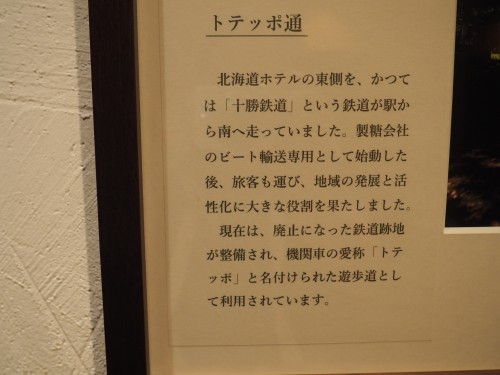 トテッポ通
北海道ホテルの東側を、かつて
は「十勝鉄道」という鉄道が駅か
ら南へ走っていました。製糖会社
のビート輸送専用として始動した
後、旅客も運び、地域の発展と活
性化に大きな役割を果たしました。
現在は、廃止になった鉄道跡地
が整備され、機関車の愛称「トテ
ッポ」と名付けられた遊歩道とし
て利用されています。